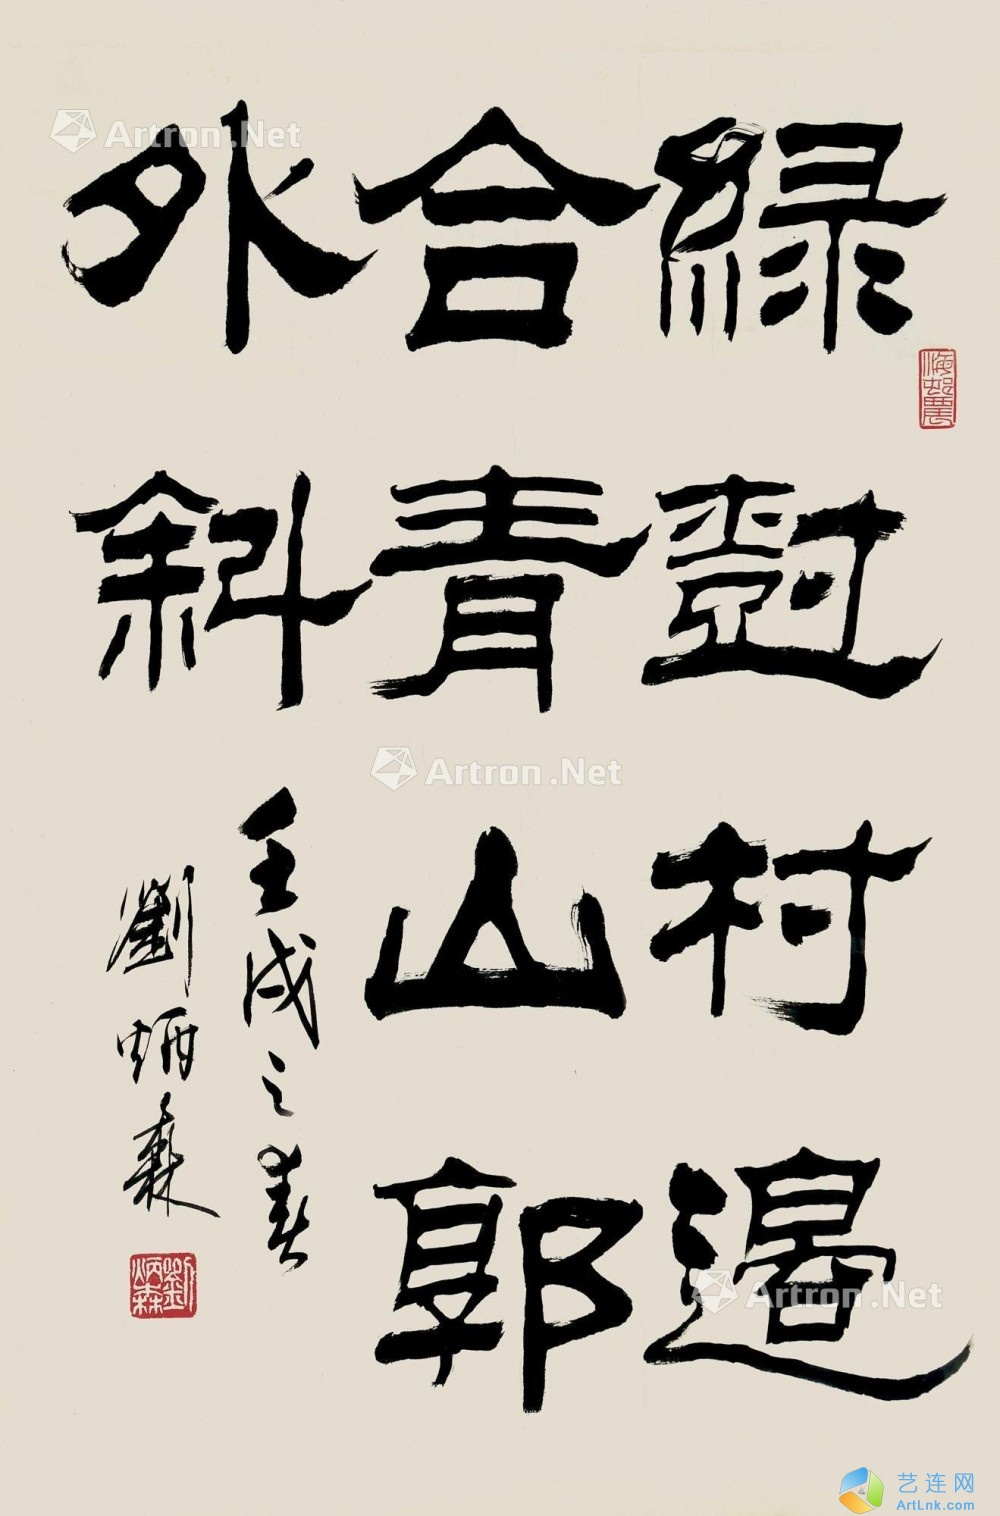 綠樹村邊
合青山郭
外斜
壬戌之春
劉炳森
海村農
劉炳森
Artron.Net
Artron.Net
Artron.Net
艺连网
ArtLnk.com